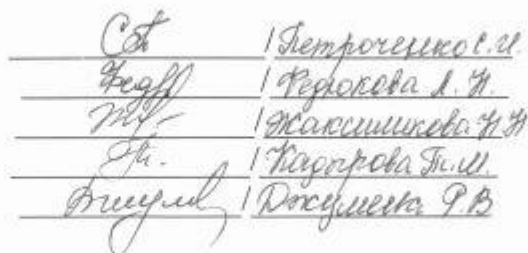 / Петроченко С.И.
/ Федюкова Л. Н.
/ Жаксиликова Н Н
/ Кадырова Т.М.
/ Джумека Р.В